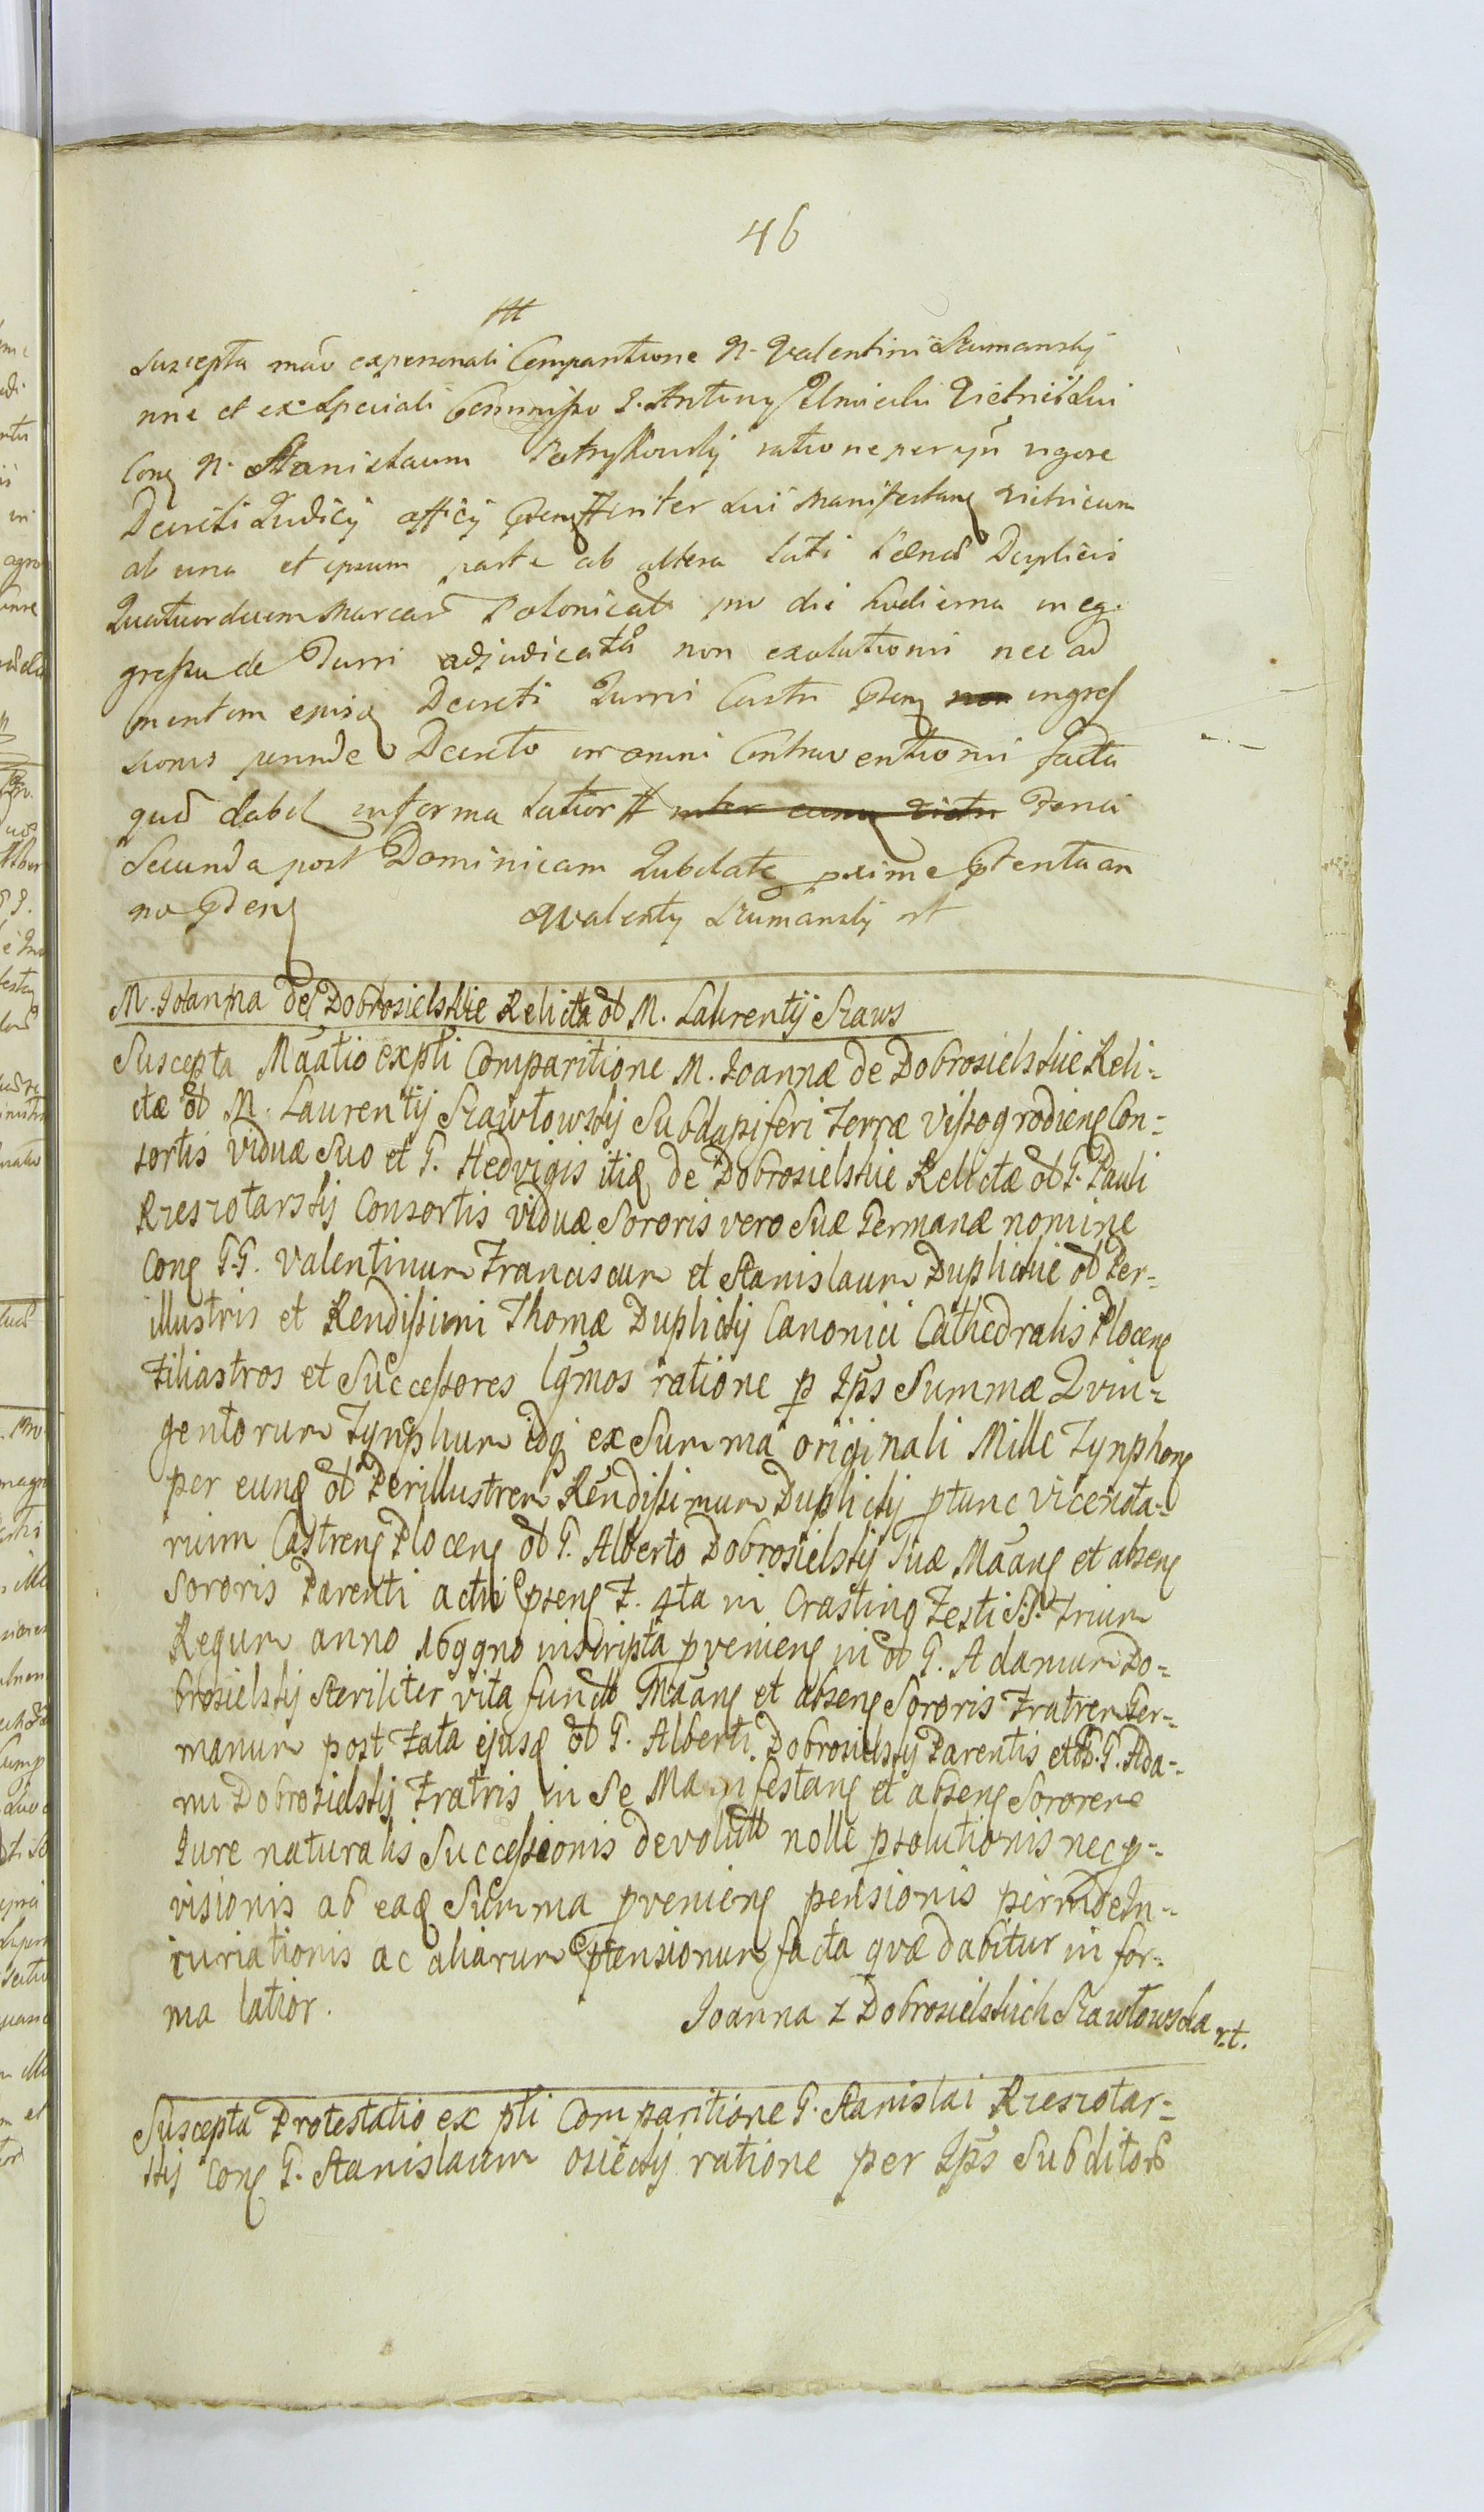 46
Suscepta mãõ ex personali Comparitione N. Valentini Szumanskij
nne et ex Speciali Commisso G.
Cong N. Stanislaum ratione per ipm vigore
Decreti Judicij officij inter Sui Manifestang victricem
ab una et ipsum parte ab altera lati Duplicis
Quatuordecim Marcar Polonical pro die hodierna in eg-
gressu de Turri adjudicata non exolutionis nec ad
mentem ejusq Decreti Turri Castri ptenq non ingres
sionis perinde Decreto in omni Contraventionis facta
quæ dabit in forma latior inter eumq Feria
Secunda post Dominicam Jubilate proxime ptenta an
no ptenq
Walenty Szumanskij rt
M. Joanna de Dobrosielskie Relicta ol M. Laurentij Szaws
Suscepta Mãatio ex psti Comparitione M. Joannæ de Dobrosielskie Reli-
ctæ ol M. Laurentij Szawłowskij Subdapiferi Terræ Vissogrodieng Con-
sortis Viduæ Suo et G. Hedvigis itiq de Dobrosielskie Relictæ ol G. Pauli
Rzeszotarskij Consortis Viduæ Sororis vero Suæ Germanæ nomine
Cong G.G. Valentinum Franciscum et Stanislaum Duplickie ol Per-
illustris et Rendissimi Thomæ Duplickij Canonici Cathedralis Ploceng
Filiastros et Successores lgmos ratione p Ips Summæ Qvin-
gentorum Tynphum idq ex Summa originali Mille Tynphong
per eunq ol Perillustrem Rendissimum Duplickij ptunc Vicenota-
rium Castreng Ploceng ol G. Alberto Dobrosielskij Suæ Mãang et abseng
Sororis Parenti actu pseng F. 4ta in Crastino Festi S.S. Trium
Regum anno 1699no inscripta pvenieng in ol G. Adamum Do-
brosielskij Steriliter vita funcit Mãang et abseng Sororis Fratrem Ger-
manum post Fata ejusq ol G. Alberti Dobrosielskij Parentis et ol. G. Ada-
mi Dobrosielskij Fratris in Se Manifestang et abseng Sororem
Jure naturalis Successionis devolutt nolle psolutionis nec p-
visionis ab eaq Summa pvenieng pensionis perinde In-
iuriationis ac aliarum ptensionum facta qvæ dabitur in for-
ma latior.
Joanna z Dobrosielskich Szawłowska r.t.
Suscepta Protestatio ex psti Comparitione G. Stanislai Rzeszotar-
skij Cong G. Stanislaum Osieckij ratione per Ips Subditos